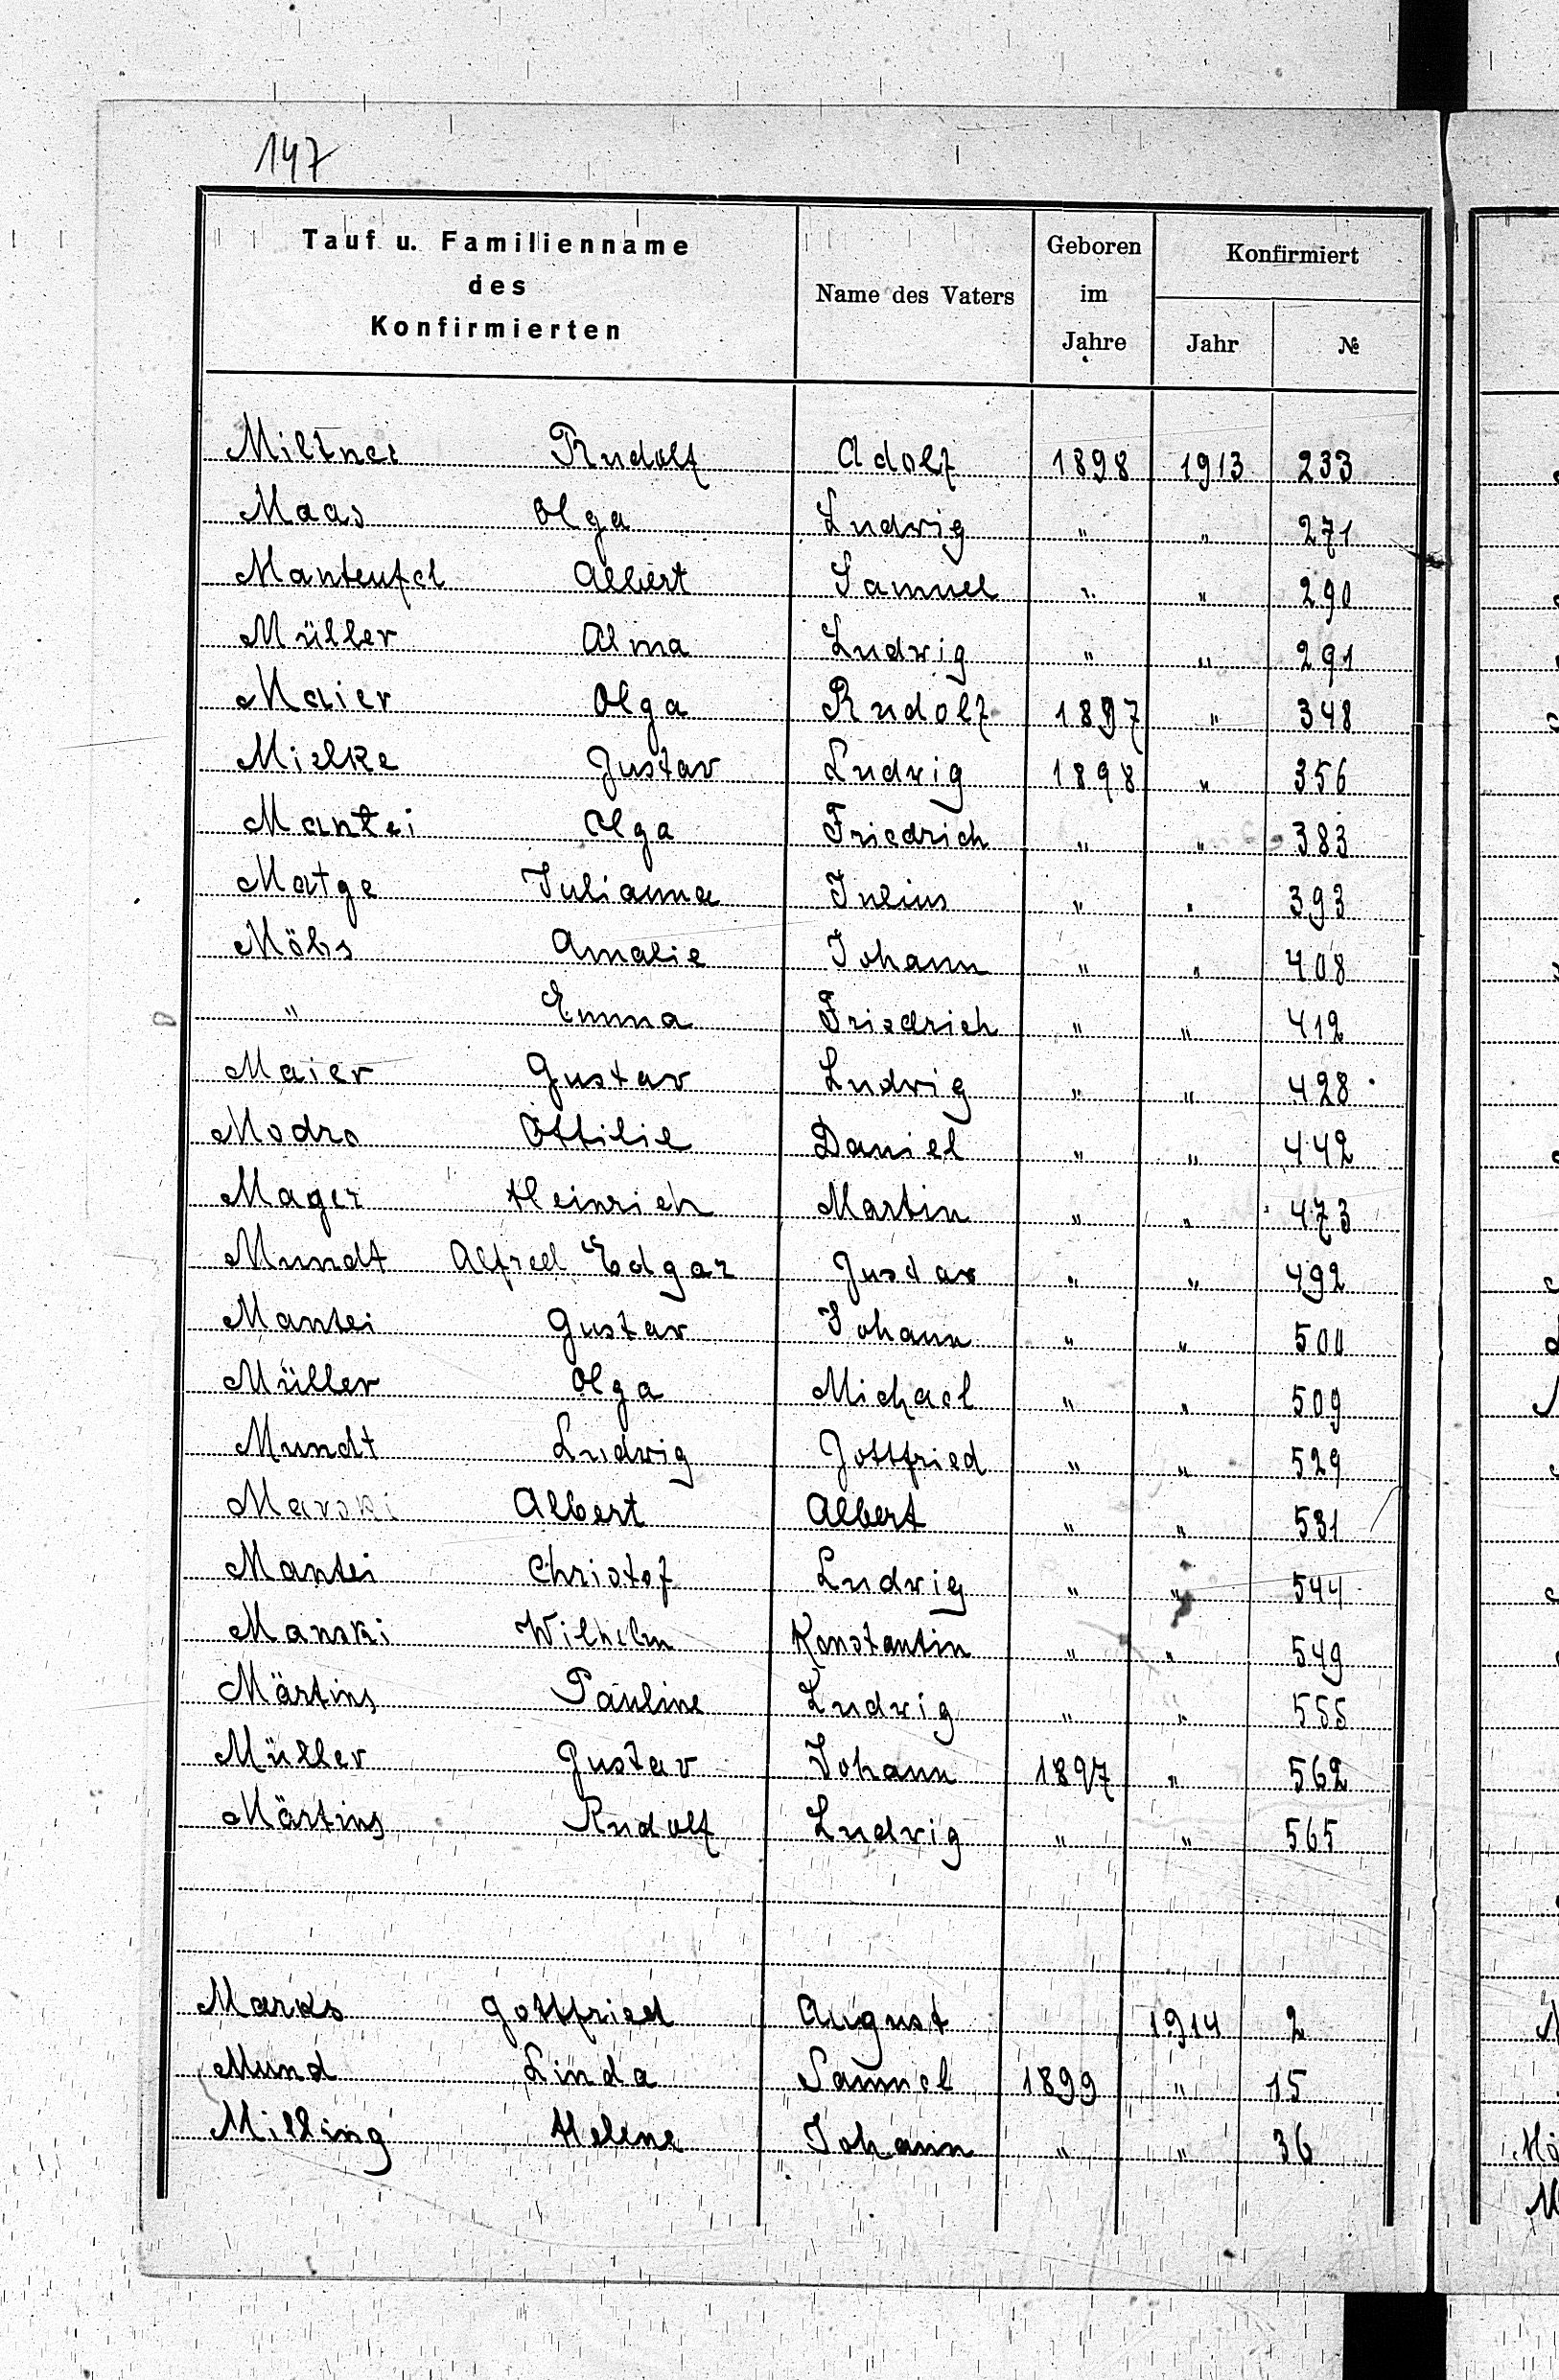 147
Tauf u. Familienname
des
Konfirmierten
Name des Vaters
Geboren
im
Jahre
Konfirmiert
Jahr
№
Miltner Rudolf Adolf 1898 1913 233
Maas Olga Ludwig " " 271
Manteufel Albert Samuel " " 290
Müller Alma Ludwig " " 291
Maier Olga Rudolf 1897 " 348
Mielke Gustav Ludwig 1898 " 356
Mantei Olga Friedrich " " 383
Matge Julianna Julius " " 393
Möbs Amalie Johann " " 408
" Emma Friedrich " " 412
Maier Gustav Ludwig " " 428
Modro Ottilie Daniel " " 442
Mager Heinrich Martin " " 473
Mundt Alfred Edgar Gustav " " 492
Mantei Gustav Johann " " 500
Müller Olga Michael " " 509
Mundt Ludwig Gottfried " " 529
Albert Albert " " 531
Mantei Christof Ludwig " " 544
Manski Wilhelm Konstantin " " 549
Märtins Pauline Ludwig " " 555
Müller Gustav Johann 1897 " 562
Märtins Rudolf Ludwig " " 565
Marks Gottfried August 1914 2
Mund Linda Samuel 1899 " 15
Milking Helene Johann " " 36